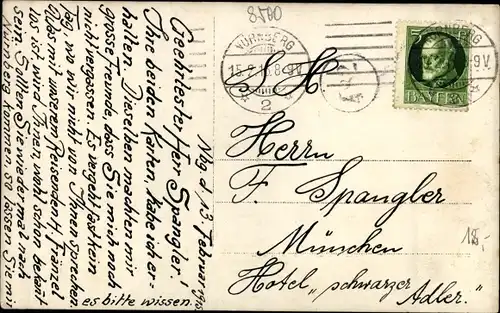 8500
NÜRNBERG
8-9V.
2
5 5
BAYERN
Nbg. d. 13. Februar
Geehrtester Herr Spangler!
Ihre beiden Karten, habe ich er-
halten. Dieselben machten mir
grosse Freunde, dass Sie mich noch
nicht vergessen. Es vergeht fast kein
Tag, wo wir nicht von Ihnen sprechen.
Aber mit unserem Reisenden H. Fränzel
los ist, wird Ihnen wohl schon bekannt
sein. Sollten Sie wieder mal nach
Nürnberg kommen, so lassen Sie mir
es bitte wissen.
S. H.
Herrn
F. Spangler
München
Hotel „schwarzer
Adler."
12,-